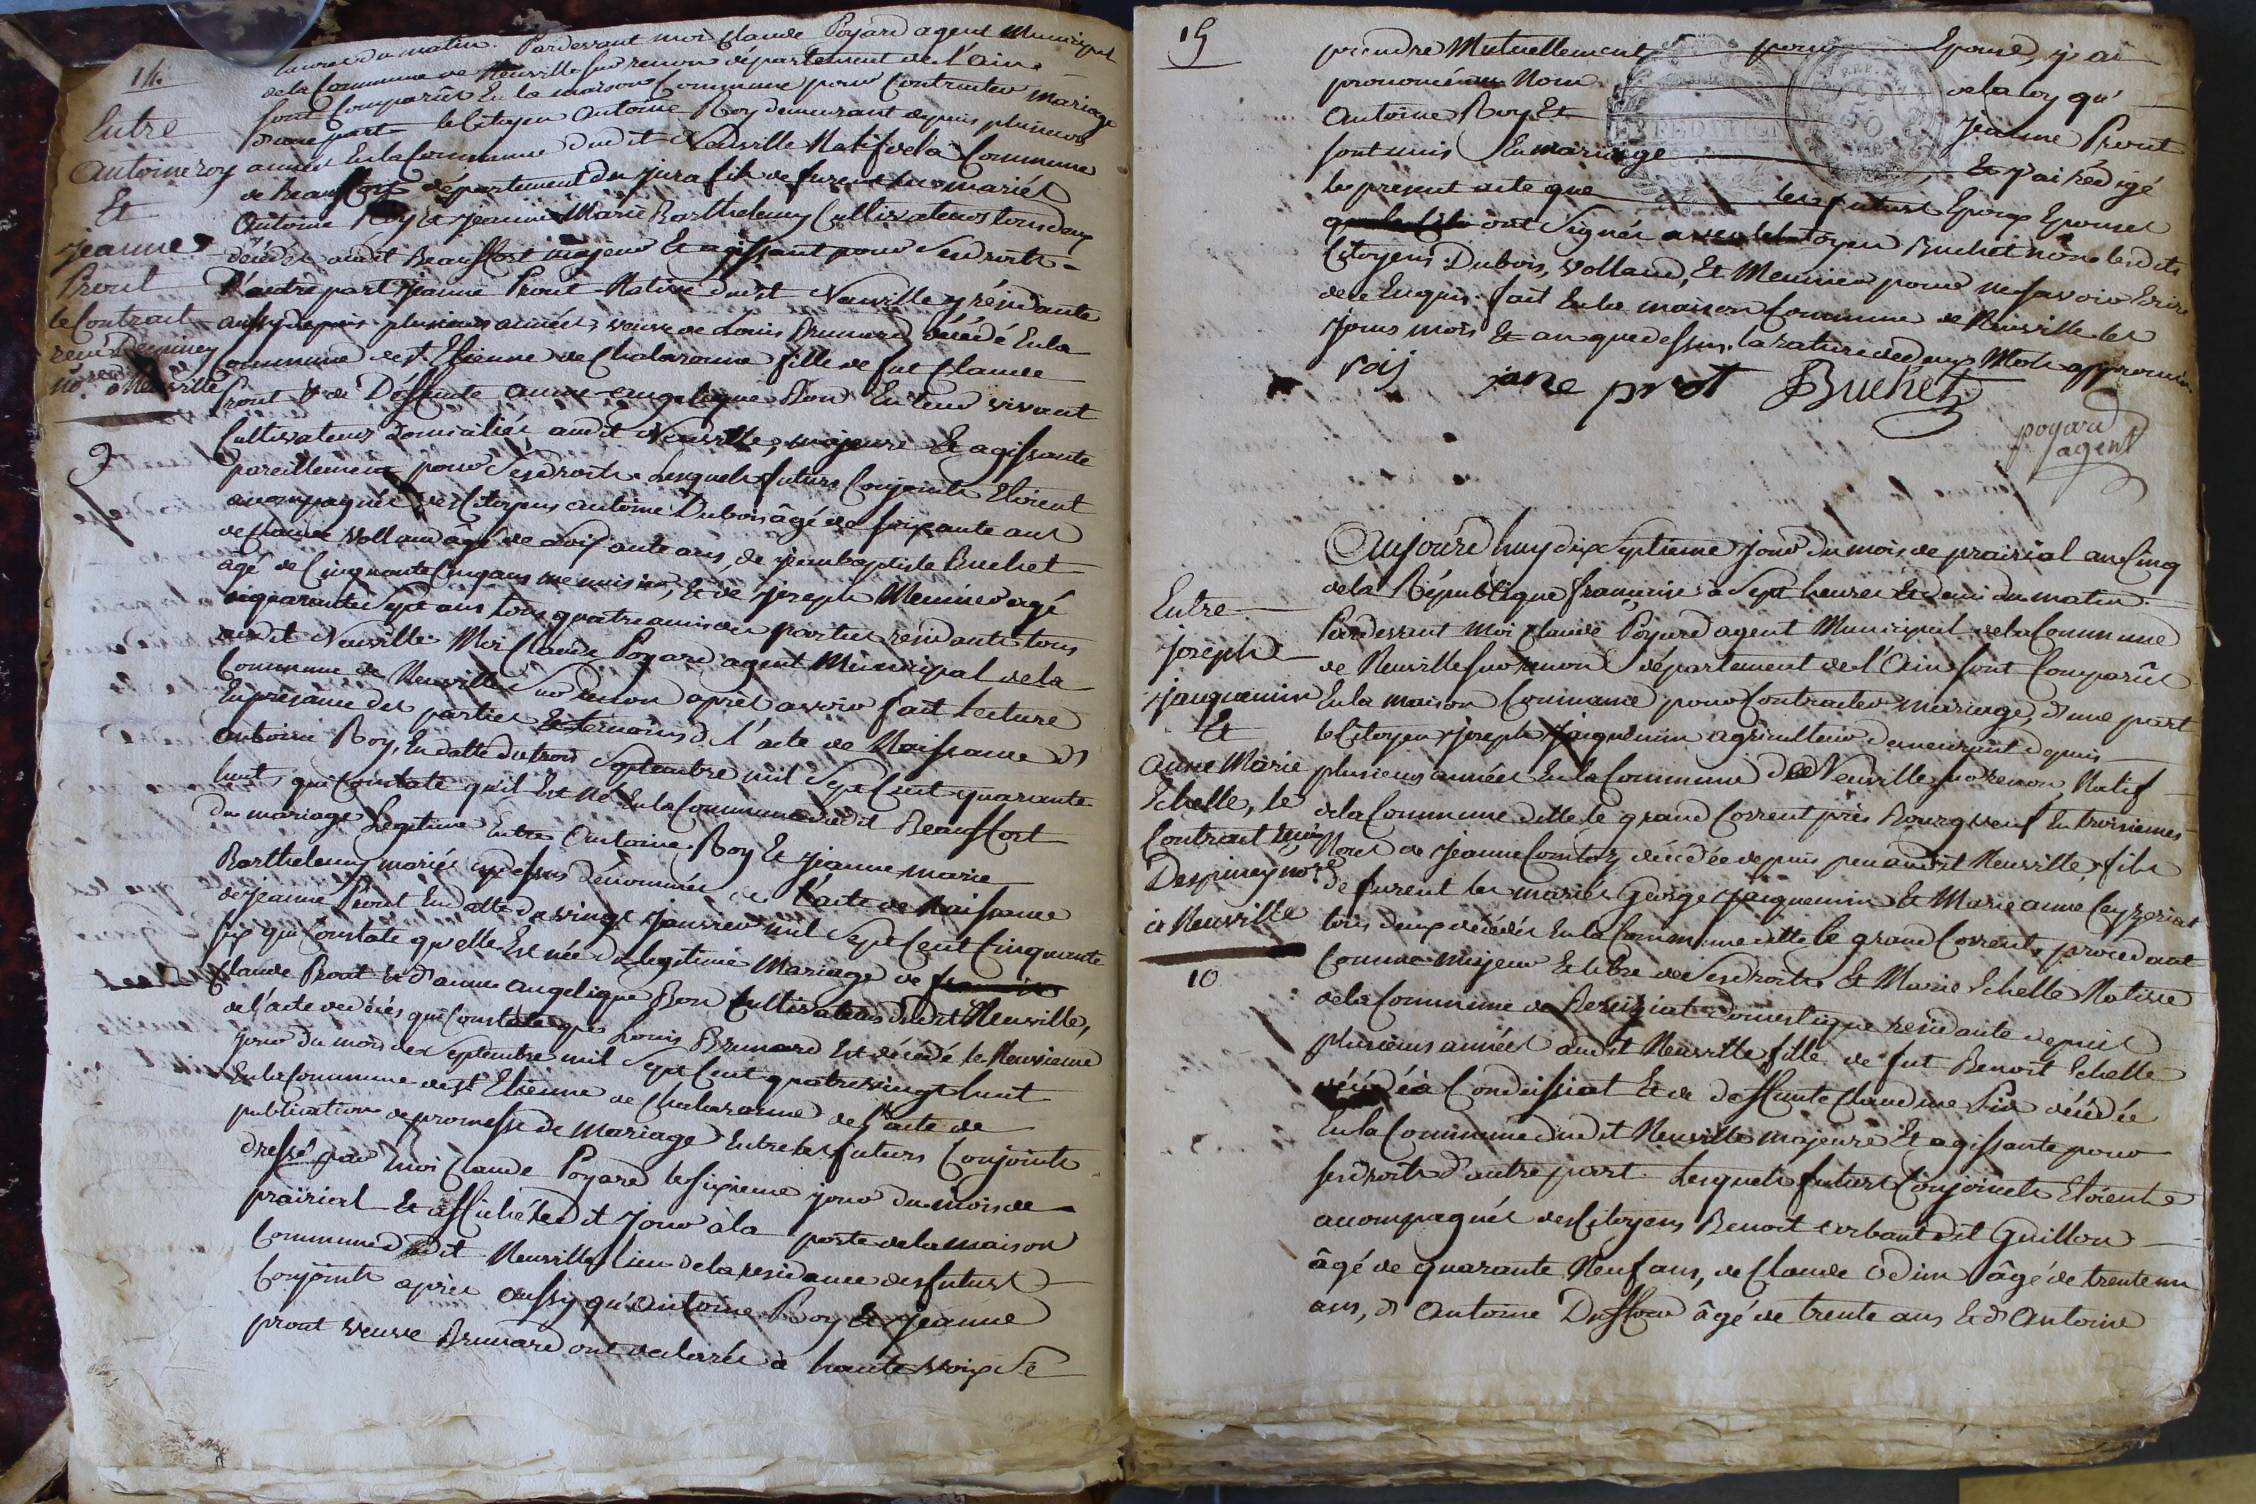 14.
heures du matin. Pardevant moi Claude Poyard agent Municipal
de la Commune de Neuville sur renon département de l'Ain
sont Comparûs En la maison Commune pour Contracter mariage
d'une part le Citoyen Antoine Roy demeurant depuis plusieurs
années En la Commune dudit Neuville Natif de la Commune
de Beauffort département du jura fils de furent les mariés
Antoine Roy Et Jeanne Marie Barthelemy Cultivateurs tous deux
décédés audit Beauffort majeur Et agissant pour ses droits
D'autre part Jeanne Prout Native dudit Neuville y résidante
aussy depuis plusieurs années, veuve de Louis Brunard décédé En la
Commune de St. Etienne de Chalaronne fille de fut Claude
Prout & de Deffunte Anne angelique Bon En leur vivant
Cultivateurs domiciliés audit Neuville, majeure Et agissante
pareillement pour ses droits. Lesquels futurs Conjoints Etoient
accompagnés des Citoyens Antoine Dubois âgé de soixante ans
de Claude Volland âgé de soixante ans, de jean baptiste Buchet
âgé de Cinquante Cinq ans menuisier, Et de joseph Meunier agé
de quarante sept ans tous quatre amis des parties residants tous
audit Neuville. Moi Claude Poyard agent Municipal de la
Commune de Neuville sur renon après avoir fait lecture
En présance des parties Et temoins d. l'acte de Naissance d'
Antoine Roy, En datte du trois septembre mil sept Cent quarante
huit, qui Constate qu'il Est Né En la Commune dudit Beauffort
du mariage Legitime Entre Antoine Roy Et jeanne marie
Barthelemy mariés cy dessus dénommés de l'acte de Naissance
de jeanne Prout En datte du vingt janvier mil sept Cent Cinquante
six qui Constate qu'elle Est née du legitime Mariage de
Claude Prout Et d'anne angelique Bon Cultivateurs dudit Neuville,
de l'acte de décés qui Constate que Louis Brunard Est décédé le Neuvieme
jour du mois de septembre mil sept Cent quatre vingt huit
En la Commune de St. Etienne de Chalaronne de l'acte de
publication de promesse de Mariage Entre les futurs Conjoints
dressé par moi Claude Poyard le sixieme jour du mois de
prairial Et affiché ledit jour à la porte de la maison
Commune dudit Neuville lieu de la residance des futurs
Conjoints après aussy qu'Antoine Roy Et jeanne
prout veuve Brunard ont declarés à haute voix se
Entre
Antoine roy
Et
jeanne
Prout
le Contrait
reçu Despiney
no.re à Neuville
9
15
prendre Mutuellement pour Epoux, j'ai
prononcé au Nom de la loy qu'
Antoine Roy Et jeanne Prout
sont unis En mariage Et j'ai rédigé
le present acte que les futurs Epoux Epouses
ont signés avec le Citoyen Buchet non les dits
Citoyens Dubois, Volland, Et Meunier pour ne savoir Ecrire
de ce Enquis. fait En la maison Commune de Neuville les
jours mois Et an que dessus. la rature de deux Mots approuvée
roij jane prot Buchet
poyard
agent
Aujourd'huy dix septieme jour du mois de prairial an Cinq
de la République française à sept heures Et demi du matin.
Pardevant Moi Claude Poyard agent Municipal de la Commune
de Neuville sur renon département de l'Ain sont Comparûs
En la maison Commune pour Contracter mariage, d'une part
le Citoyen joseph Jaiquemin agriculteur demeurant depuis
plusieurs années En la Commune de Neuville sur renon Natif
de la Commune ditte le grand Corrent près Bourg veuf En troisiemes
Noces de jeanne Comtoz, décédée depuis peu audit Neuville, fils
de furent les mariés George jaiquemin Et Marie anne Ceyzeriat
tous deux décédés En la Commune ditte le grand Corrent, procedant
Comme majeur Et libre de ses droits Et Marie Echelle Native
de la Commune de domestique residante depuis
plusieurs années audit Neuville fille de fut Benoit Echelle
décédé à Condeissiat Et de deffunte Claudine décédée
En la Commune dudit Neuville majeure Et agissante pour
ses droits d'autre part. Lesquels futurs Conjoints Etoient
accompagnés des Citoyens Benoit dit Guillon
âgé de quarante Neuf ans, de Claude Odin âgé de trente un
ans, d' Antoine Duffour âgé de trente ans Et d'Antoine
Entre
joseph
jauquemin
Et
Anne Marie
Echelle, le
Contrait reçu
Despiney no.re
à Neuville
10